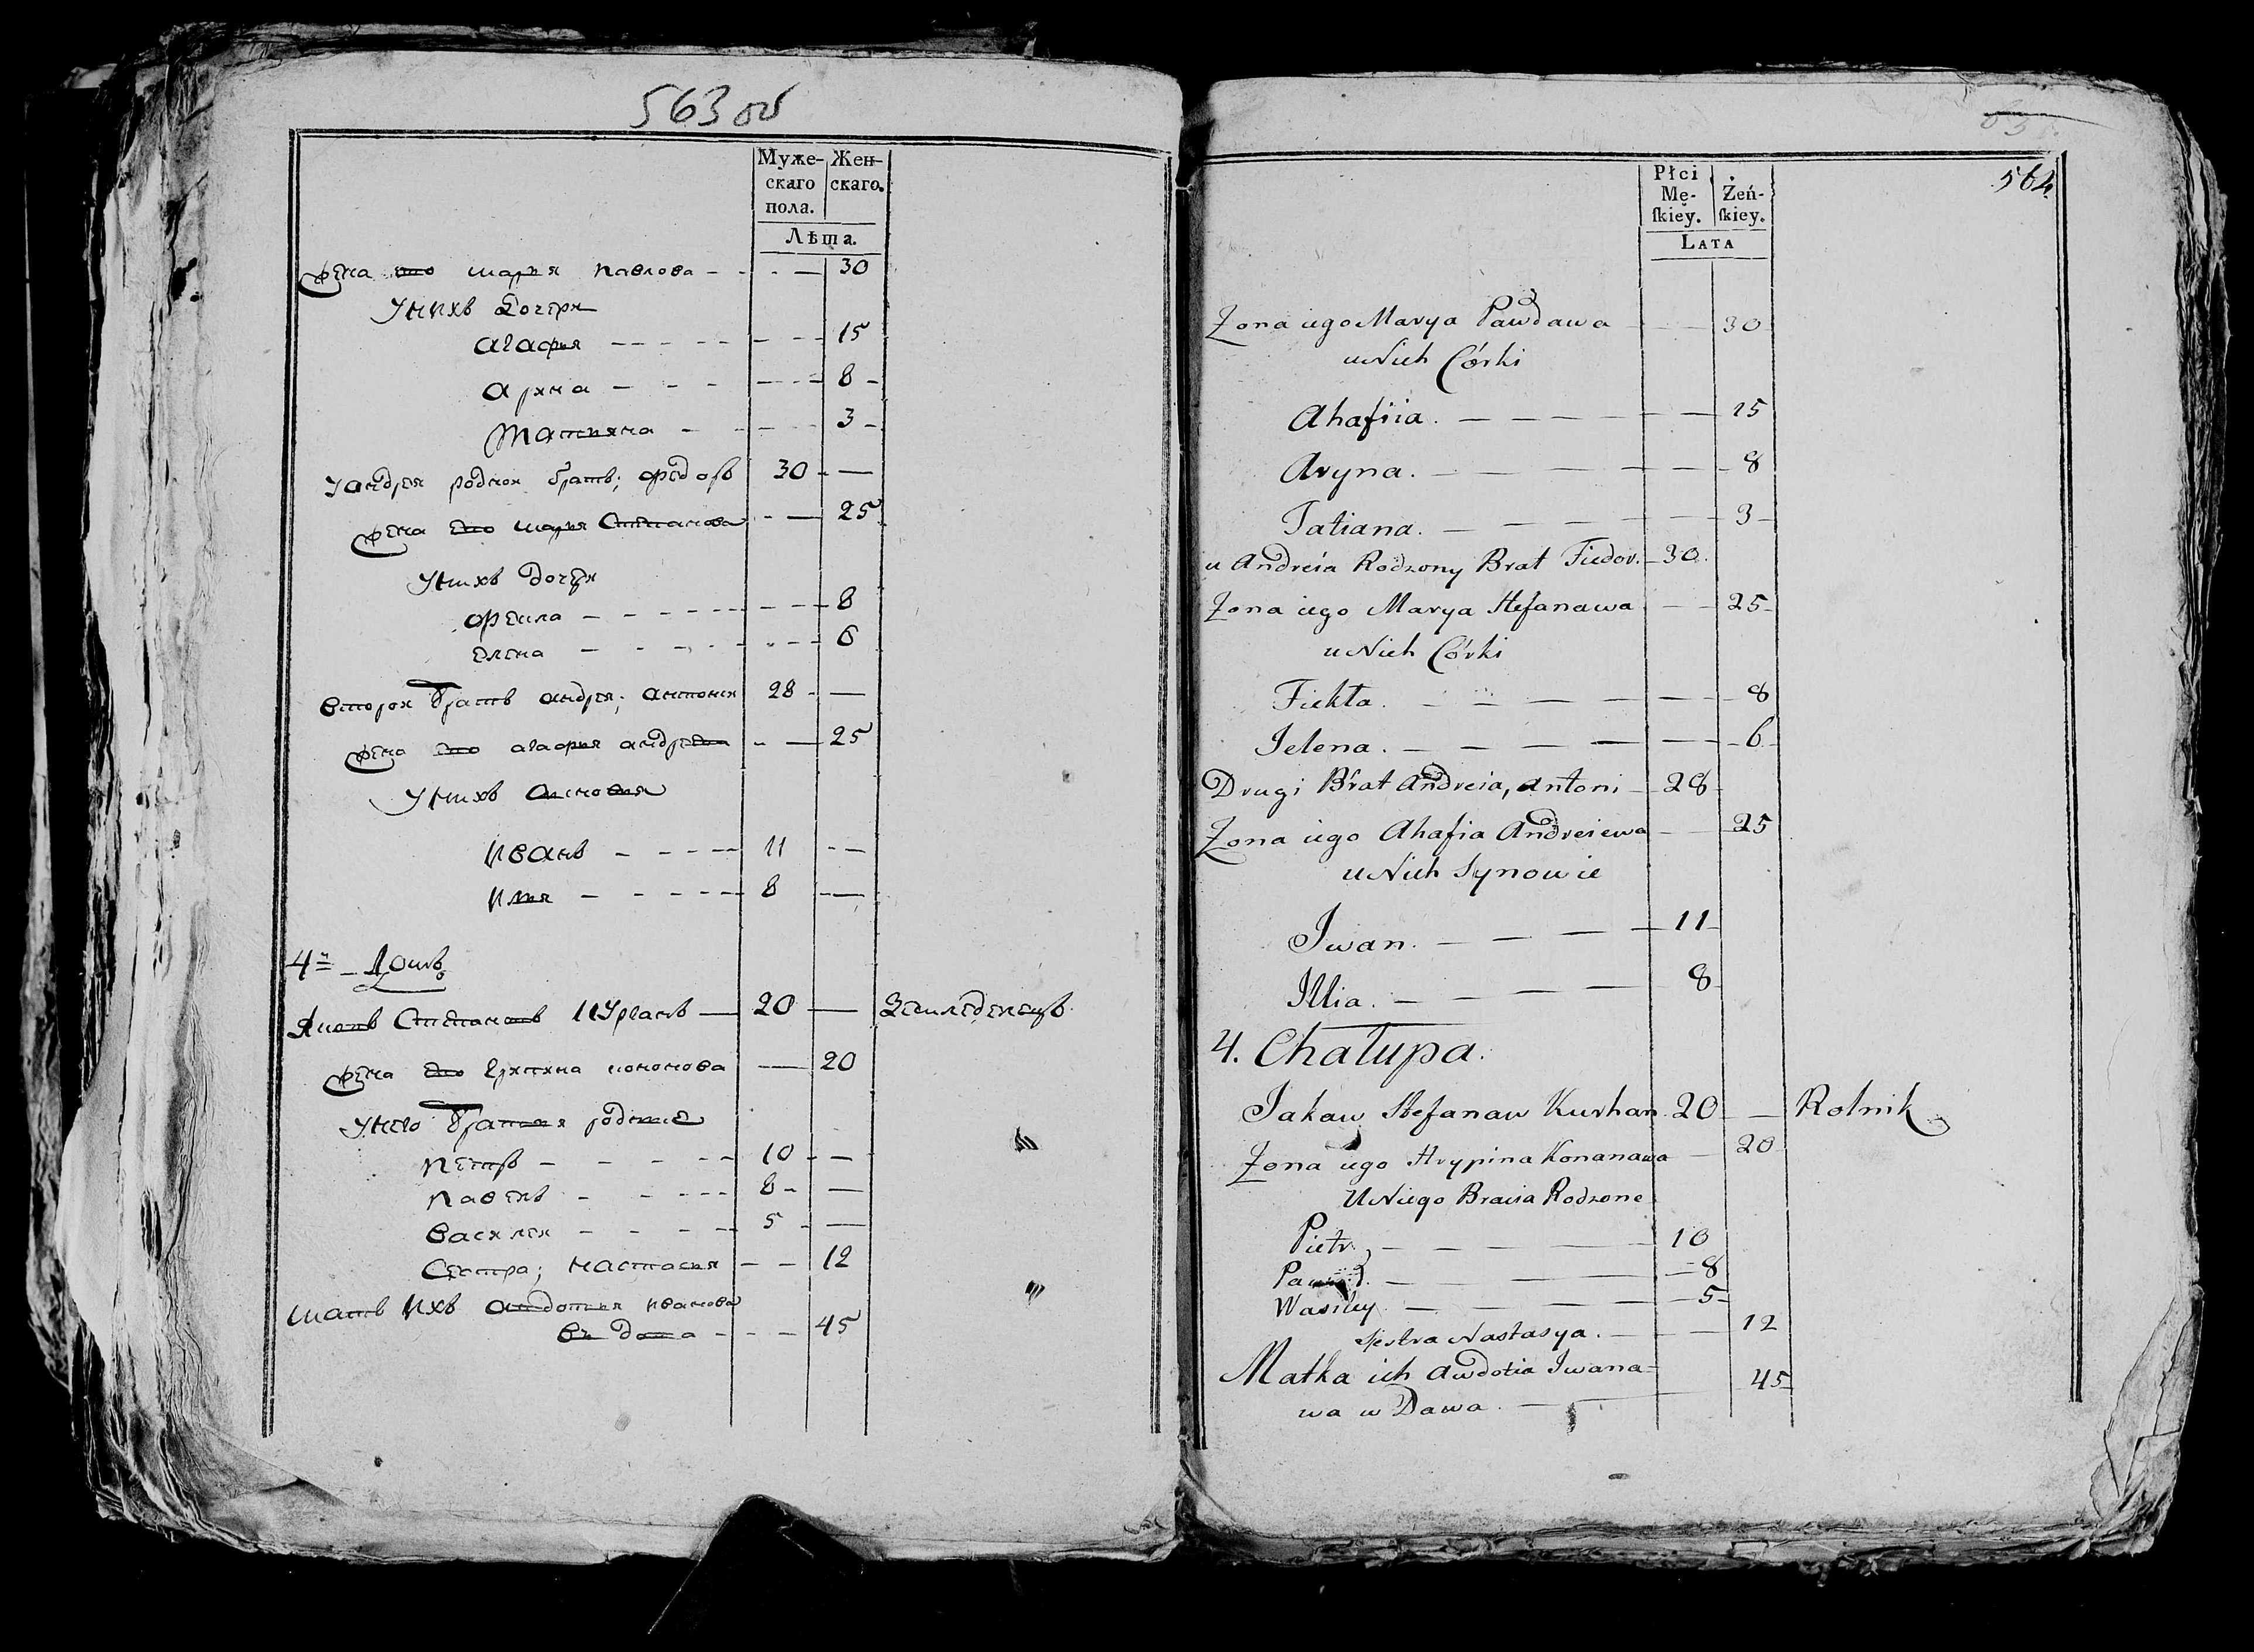 563 об
Муже- Жен-
скаго скаго.
пола.
Лѣта.
жена его марія павлова - - - 30
У нихъ дочери
агафія - - - - 15
арина - - - - 8 -
татияна - - - 3 -
У андрея родной братъ; федоръ 30 - -
жена его марія Степанова - - 25
У нихъ дочери
фекла - - - - 8
елена - - - - 6
второй братъ андрея; антоній 28 - -
жена его агафія андреева - - 25
У нихъ сыновья
иванъ - - - - 11 - -
илія - - - - 8 - -
4й - Домъ
Яковъ Степановъ Курганъ - 20 - Земледелецъ.
жена его грипина кононова - 20
У него братья родные
петръ - - - - 10 - -
павелъ - - - - 8 - -
василей - - - - 5 - -
Сестра; настасия - - 12
мать ихъ авдотия иванова
вдова - - - 45
564
Płci
Mę- Żeń-
ſkiey. ſkiey.
LATA
Zona iego Marya Pawdawa - - 30
u Nich Córki
Ahafiia. - - - - 15
Aryna. - - - - 8
Tatiana. - - - - 3 -
u Andreia Rodzony Brat Fiedor. - 30.
Zona iego Marya Stefanawa - - 25 -
u Nich Córki
Fiekta. - - - - 8
Jelena. - - - - 6 -
Drugi Brat Andreia, Antoni - 28 -
Zona iego Ahafia Andreiewa - - 25
u Nich Synowie
Jwan. - - - 11 -
Illia. - - - - 8 -
4. Chałupa.
Jakaw Stefanaw Kurhan. 20 - - Rolnik
Zona iego Hrypina Konanawa - 20
U Niego Bracia Rodzone
Pietr, - - - - 10
- - - - 8
Wasiley. - - - - 5 -
Sjestra Nastasya. - - - 12
Matka ich Awdotia Jwana-
wa w Dawa. - - 45 -